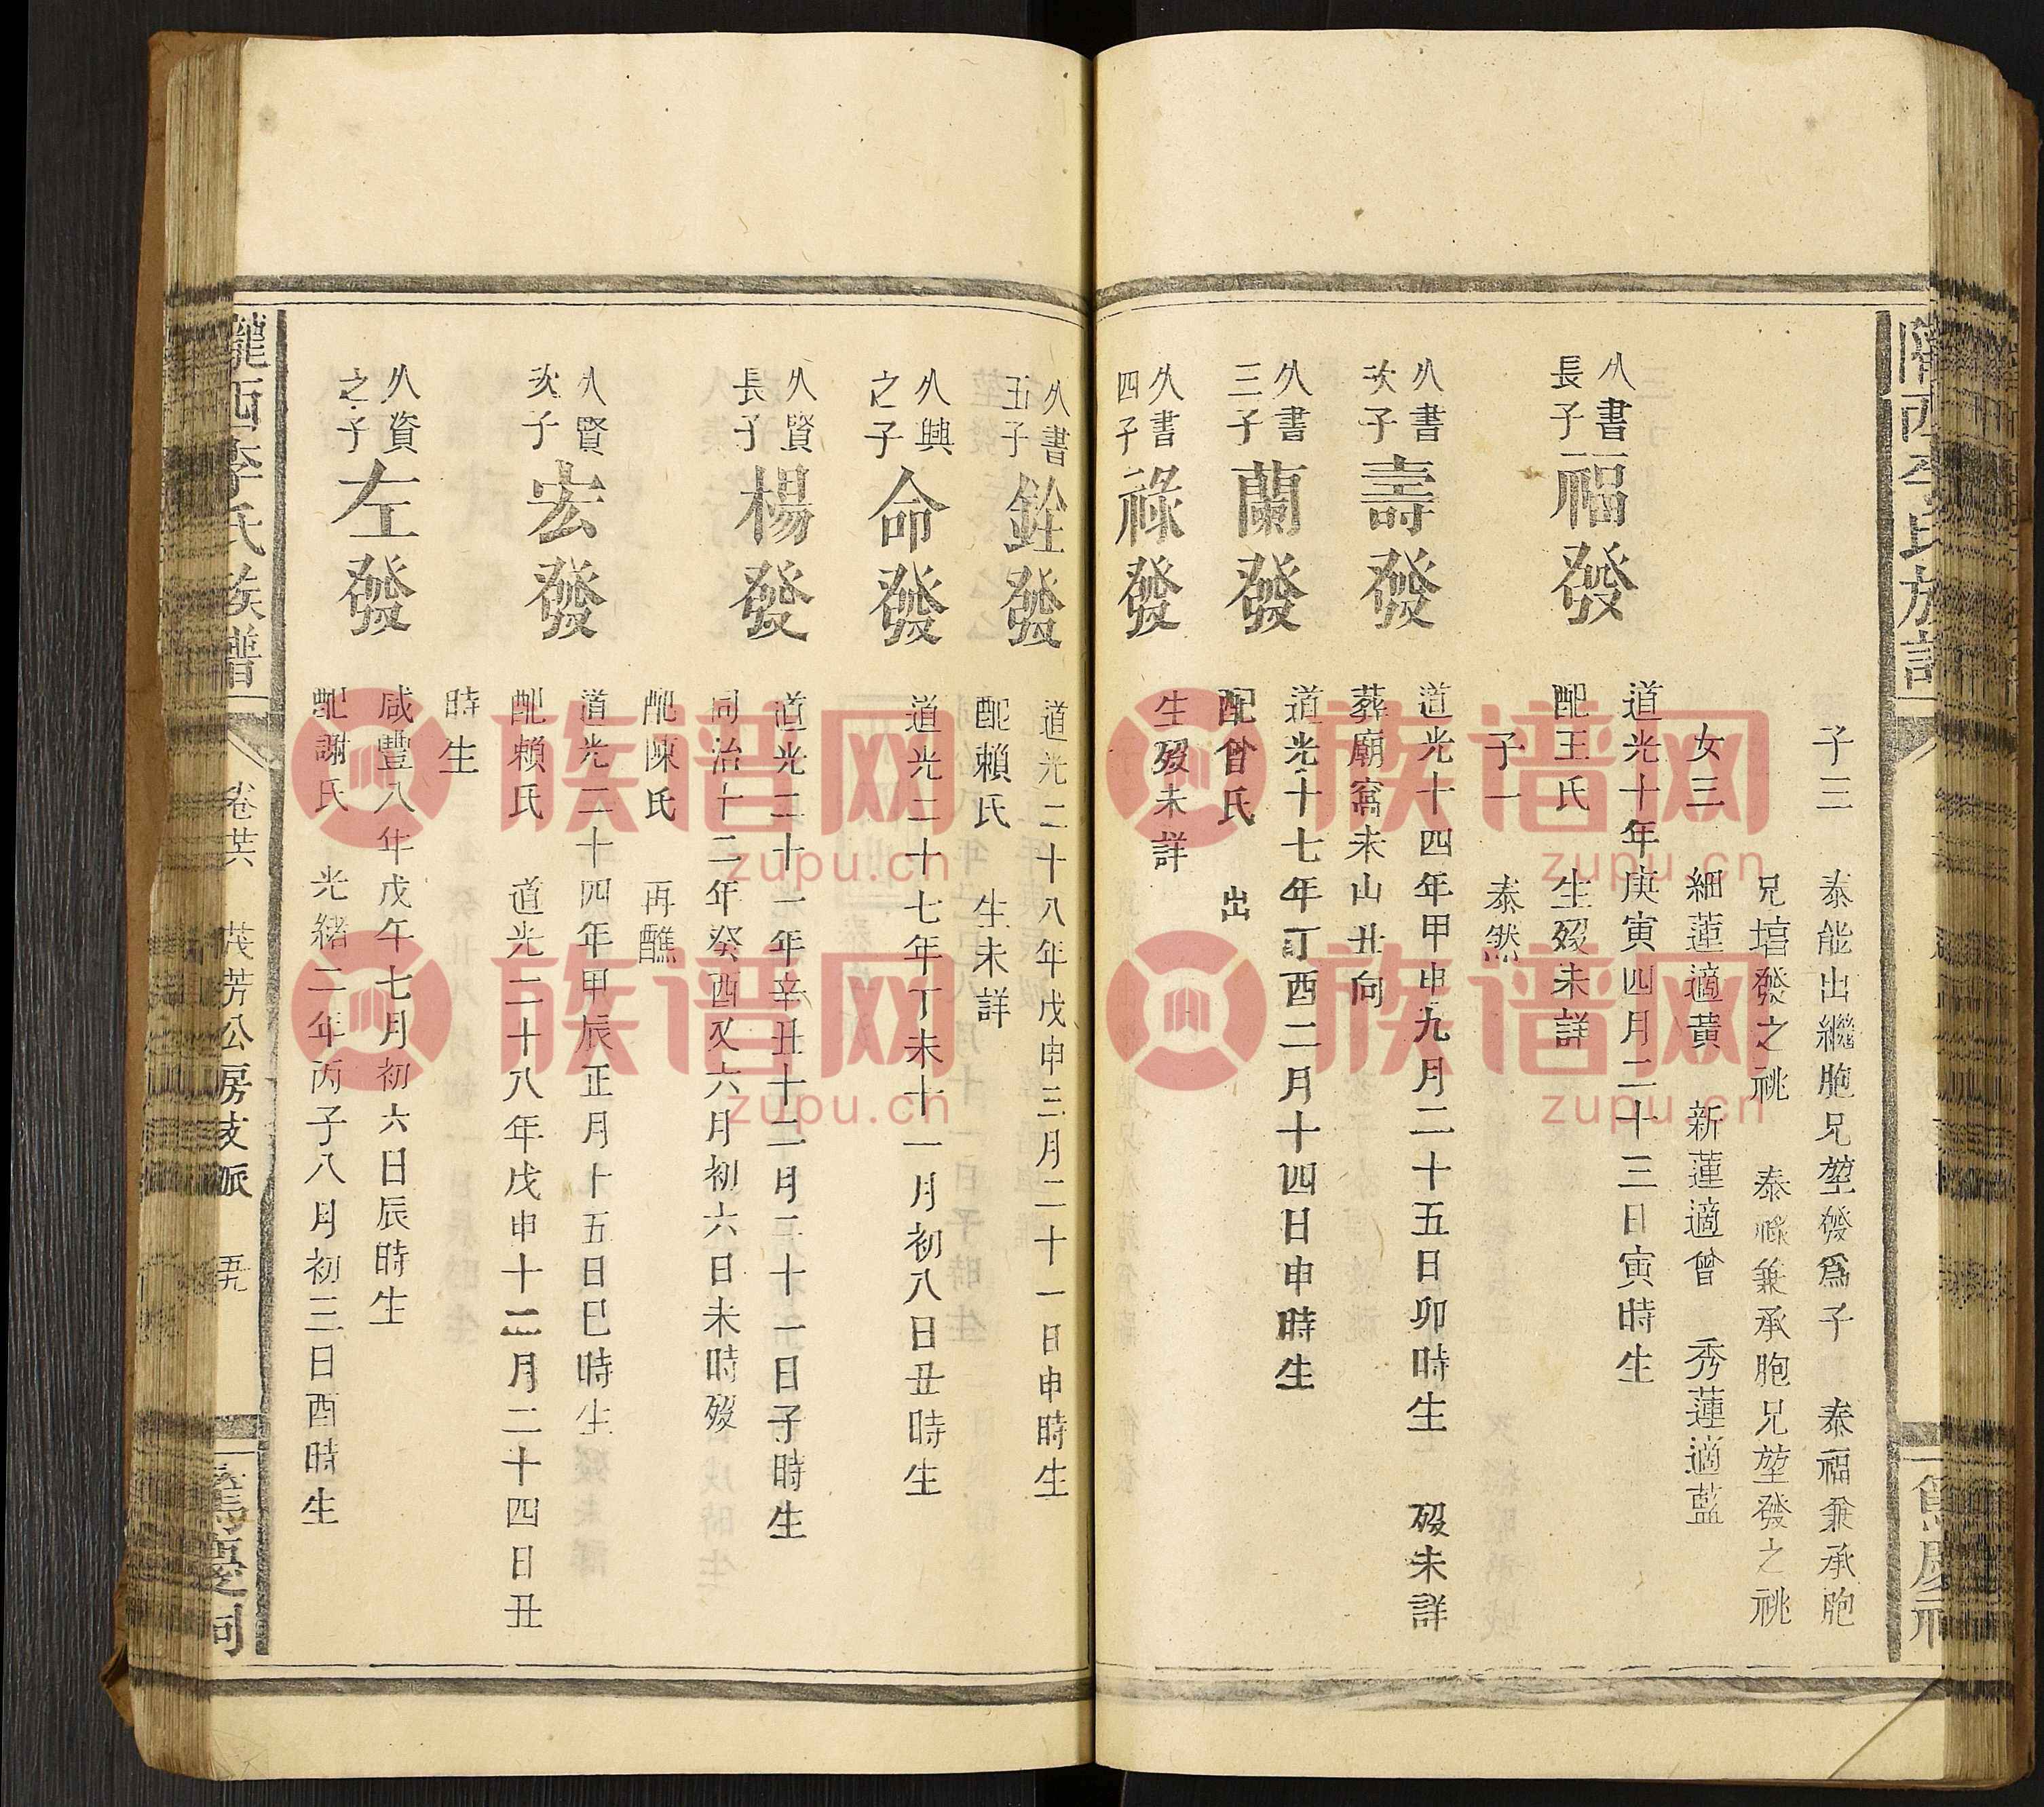 隴西李氏族譜
子三　泰能出繼胞兄堃發爲子　泰福兼承胞
兄堷發之祧　泰祿兼承胞兄堃發之祧
女三　細蓮適黃　新蓮適曾　秀蓮適藍
久書長子福發　道光十年庚寅四月二十三日寅時生
配王氏　生歿未詳
子一　泰然
久書次子壽發　道光十四年甲申九月二十五日卯時生　歿未詳
葬廟窩未山丑向
久書三子蘭發　道光十七年丁酉二月十四日申時生
配曾氏　出
久書四子祿發　生歿未詳
久書五子銓發　道光二十八年戊申三月二十一日申時生
配賴氏　生未詳
久興之子命發　道光二十七年丁未十一月初八日丑時生
久賢長子楊發　道光二十一年辛丑十二月二十一日子時生
同治十二年癸酉又六月初六日未時歿
配陳氏　再醮
久賢次子宏發　道光二十四年甲辰正月十五日巳時生
配賴氏　道光二十八年戊申十二月二十四日丑
時生
久資之子左發　咸豐八年戊午七月初六日辰時生
配謝氏　光緒二年丙子八月初三日酉時生
隴西李氏族譜　卷　茂芳公房支派　慶祠
族谱网
zupu.cn
族谱网
zupu.cn
族谱网
zupu.cn
族谱网
zupu.cn